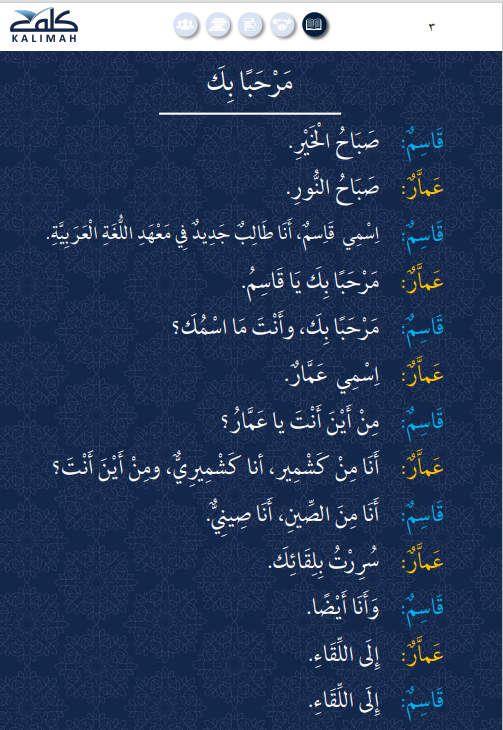 كلمة
KALIMAH
٣
مَرْحَبًا بِكَ
قَاسِمٌ: صَبَاحُ الْخَيْرِ.
عَمَّارٌ: صَبَاحُ النُّورِ.
قَاسِمٌ: اِسْمِي قَاسِمٌ، أَنَا طَالِبٌ جَدِيدٌ فِي مَعْهَدِ اللُّغَةِ الْعَرَبِيَّةِ.
عَمَّارٌ: مَرْحَبًا بِكَ يَا قَاسِمُ.
قَاسِمٌ: مَرْحَبًا بِكَ، وأَنْتَ مَا اسْمُكَ؟
عَمَّارٌ: اِسْمِي عَمَّارٌ.
قَاسِمٌ: مِنْ أَيْنَ أَنْتَ يا عَمَّارُ؟
عَمَّارٌ: أَنَا مِنْ كَشْمِير، أنا كَشْمِيرِيٌّ، ومِنْ أَيْنَ أَنْتَ؟
قَاسِمٌ: أَنَا مِنَ الصِّينِ، أَنَا صِينِيٌّ.
عَمَّارٌ: سُرِرْتُ بِلِقَائِكَ.
قَاسِمٌ: وَأَنَا أَيْضًا.
عَمَّارٌ: إِلَى اللِّقَاءِ.
قَاسِمٌ: إِلَى اللِّقَاءِ.